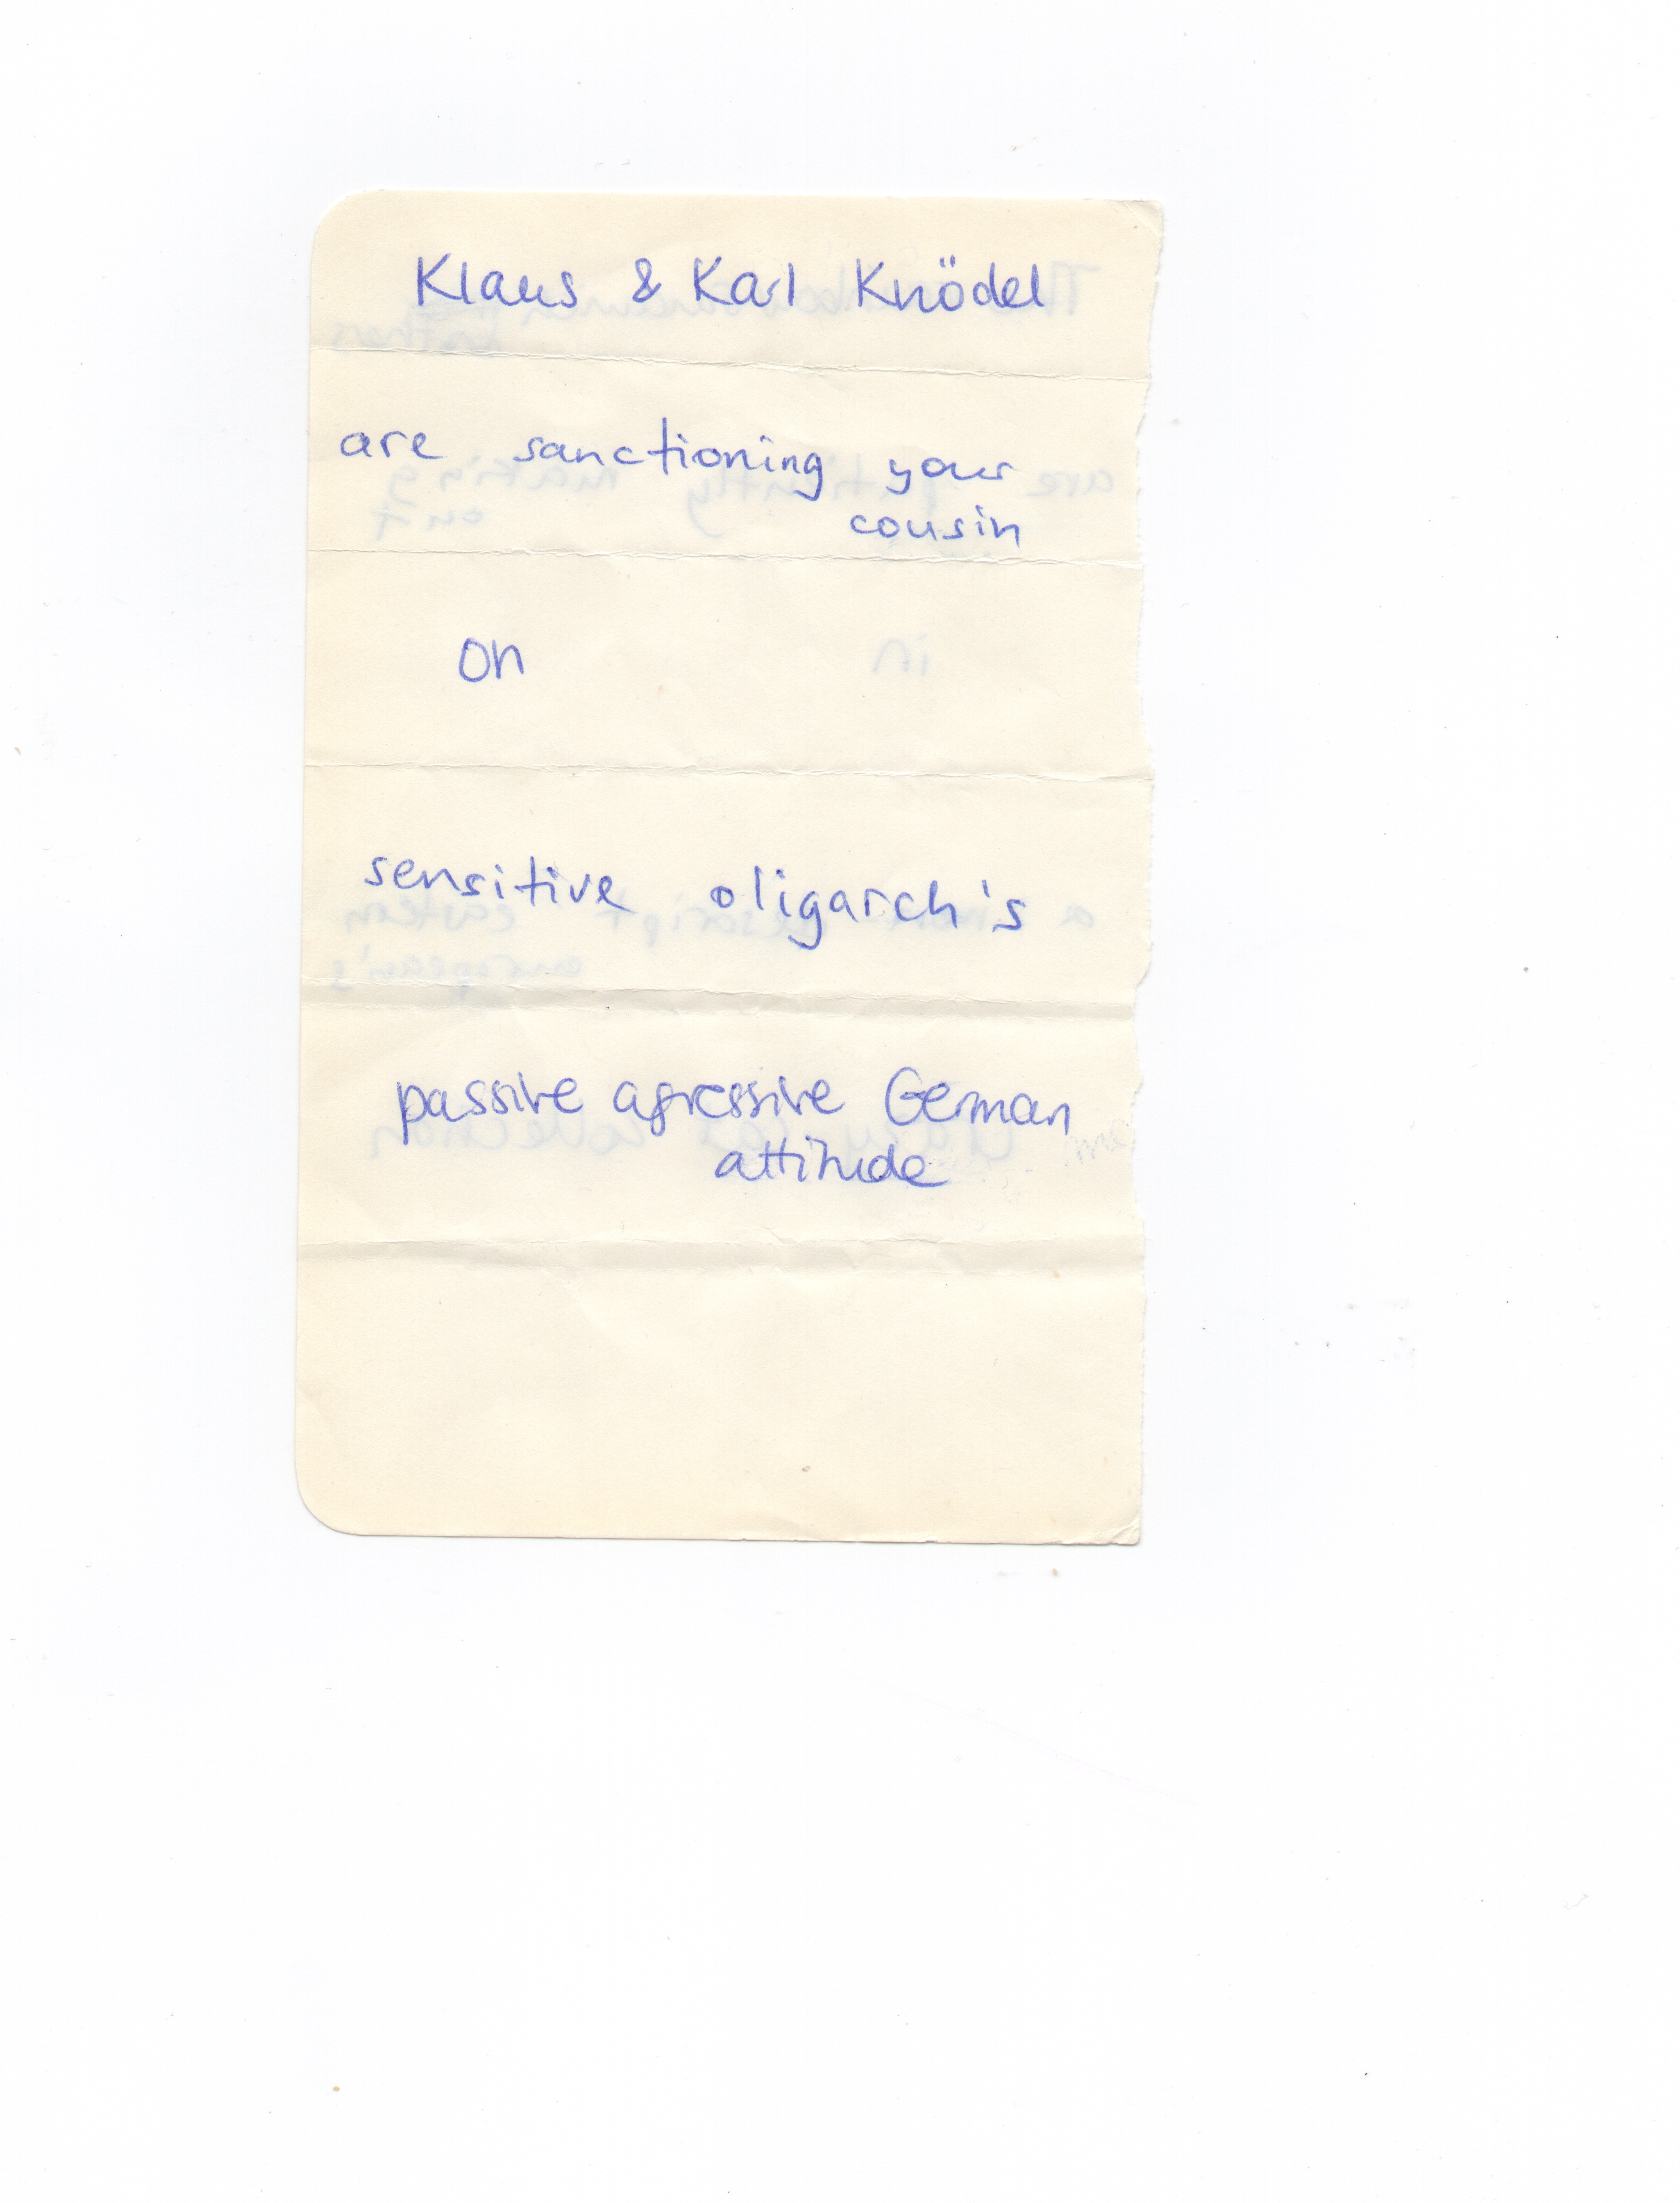 Klaus & Karl Knödel
are sanctioning your
cousin
on
sensitive oligarch's
passive agressive German
attitude